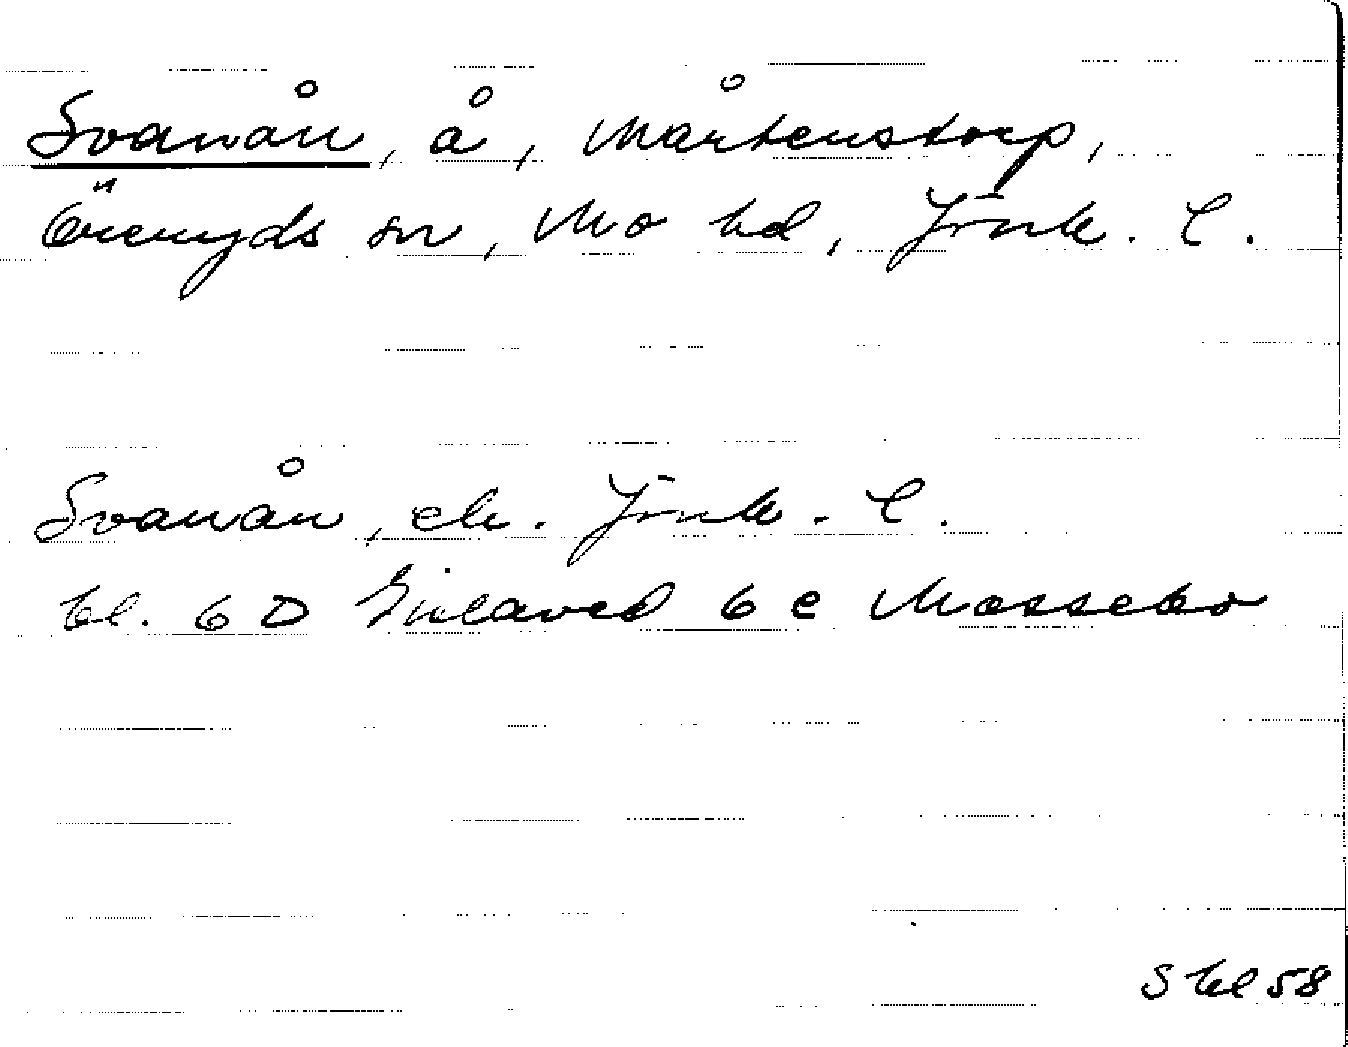 Svanån, å, Mårtenstorp,
Öreryds sn, Mo hd, Jönk. l.
Svanån, ek. Jönk. l.
bl. 6 D Gislaved 6 c Mossebo
S bl 58